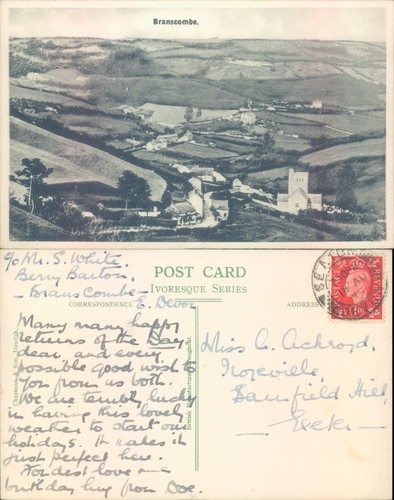 Branscombe.
c/o Mr. S. White.
Berry Barton.
Branscombe
E. Devon
POST CARD
IVORESQUE SERIES
CORRESPONDENCE
ADDRESS
SEATON
POSTAGE REVENUE
Many many happy
returns of the Day
dear and every
possible good wish to
you from us both.
We are terribly lucky
in having this lovely
weather to start our
holidays. It makes it
just perfect here.
Fondest love
birthday hug from
Miss A. Ackroyd.
Hill,
Exeter
British Manufacture Throughout.